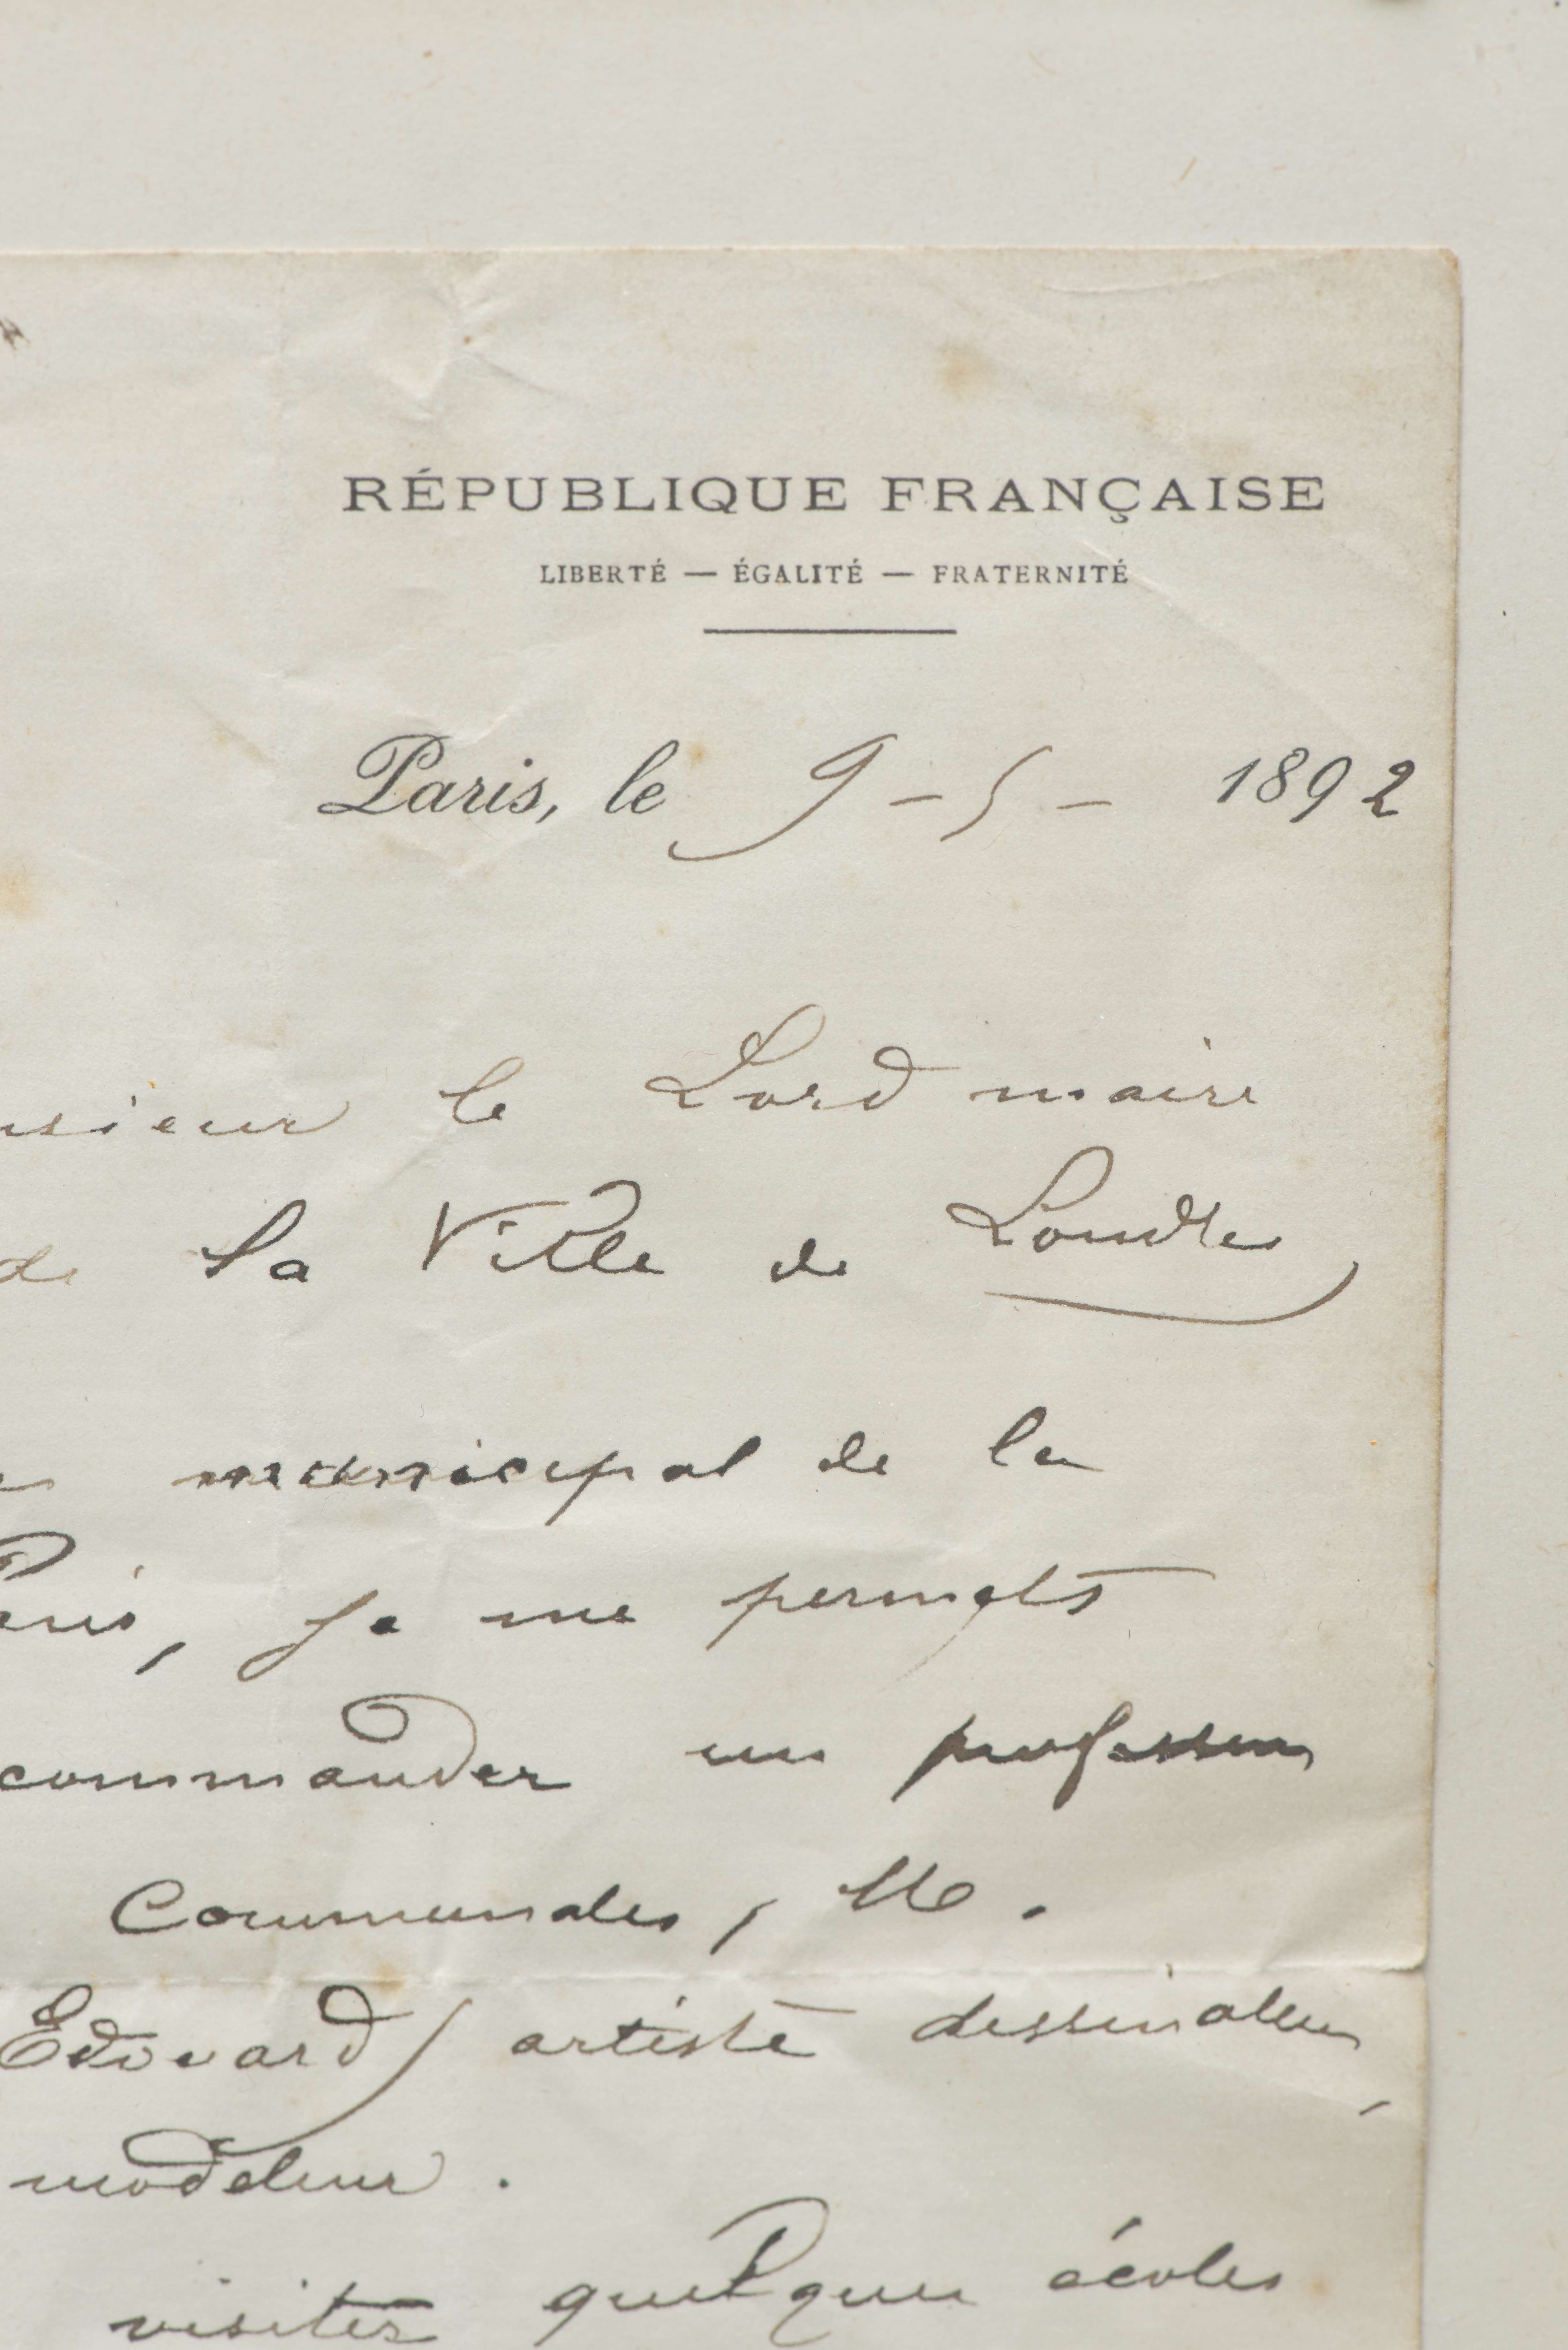 RÉPUBLIQUE FRANÇAISE
LIBERTÉ — ÉGALITÉ — FRATERNITÉ
Paris, le 9 - 5 - 1892
nsieur le Lord maire
de la Ville de Londres
municipal de la
aris, je me permets
commander un professeur
Communales, M.
Edouard, artiste dessinateur,
modeleur.
visiter quelques écoles